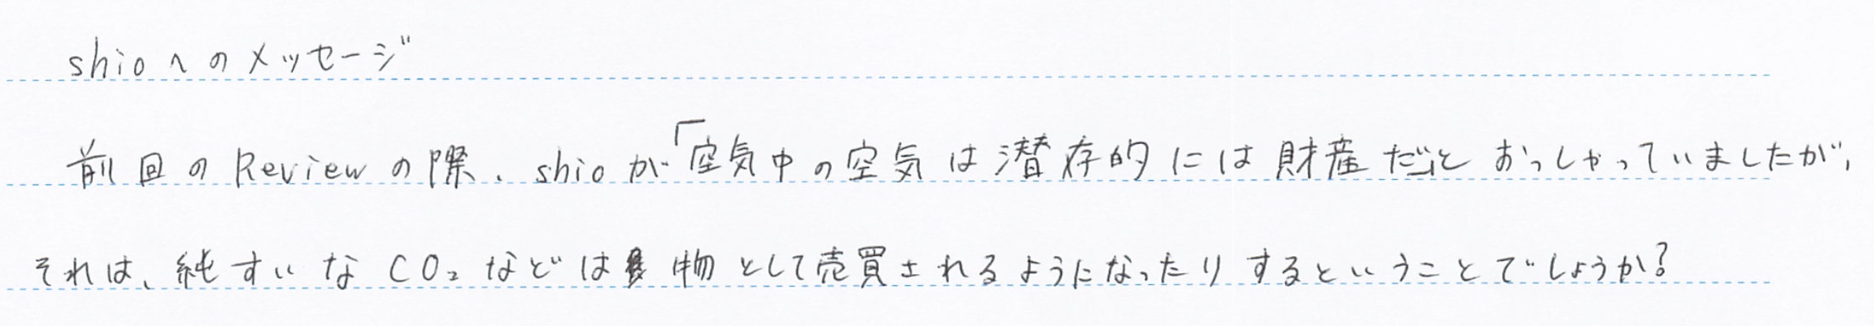 shioへのメッセージ
前回のReviewの際、shioが「空気中の空気は潜在的には財産だ」とおっしゃっていましたが、
それは、純すいなCO₂などは物として売買されるようになったりするということでしょうか?